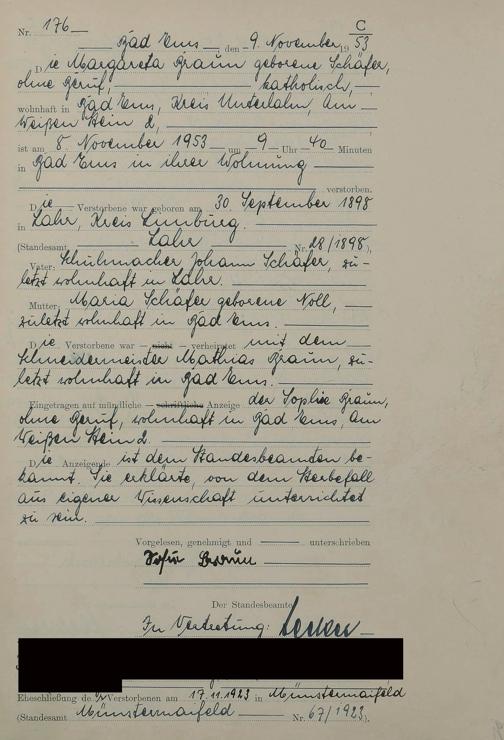 Nr. 176
C
Bad Ems, den 9. November 1953
Die Margareta Braun geborene Schäfer,
ohne Beruf, katholisch,
wohnhaft in Bad Ems, Kreis Unterlahn, Am
Weißen Stein 2,
ist am 8. November 1953 um 9 Uhr 40 Minuten
in Bad Ems in ihrer Wohnung
verstorben.
Die Verstorbene war geboren am 30. September 1898
in Lahr, Kreis Limburg.
(Standesamt Lahr Nr. 28/1898),
Vater: Schuhmacher Johann Schäfer, zu-
letzt wohnhaft in Lahr.
Mutter: Maria Schäfer geborene Noll,
zuletzt wohnhaft in Bad Ems.
Die Verstorbene war — nicht — verheiratet mit dem
Schneidermeister Mathias Braun, zu-
letzt wohnhaft in Bad Ems.
Eingetragen auf mündliche — schriftliche Anzeige der Sophie Braun,
ohne Beruf, wohnhaft in Bad Ems, Am
Weißen Stein 2.
Die Anzeigende ist dem Standesbeamten be-
kannt. Sie erklärte, von dem Sterbefall
aus eigener Wissenschaft unterrichtet
zu sein.
Vorgelesen, genehmigt und unterschrieben
Braun
Der Standesbeamte
In Vertretung:
Eheschließung der Verstorbenen am 17.11.1923 in Münstermaifeld
(Standesamt Münstermaifeld Nr. 67/1923).